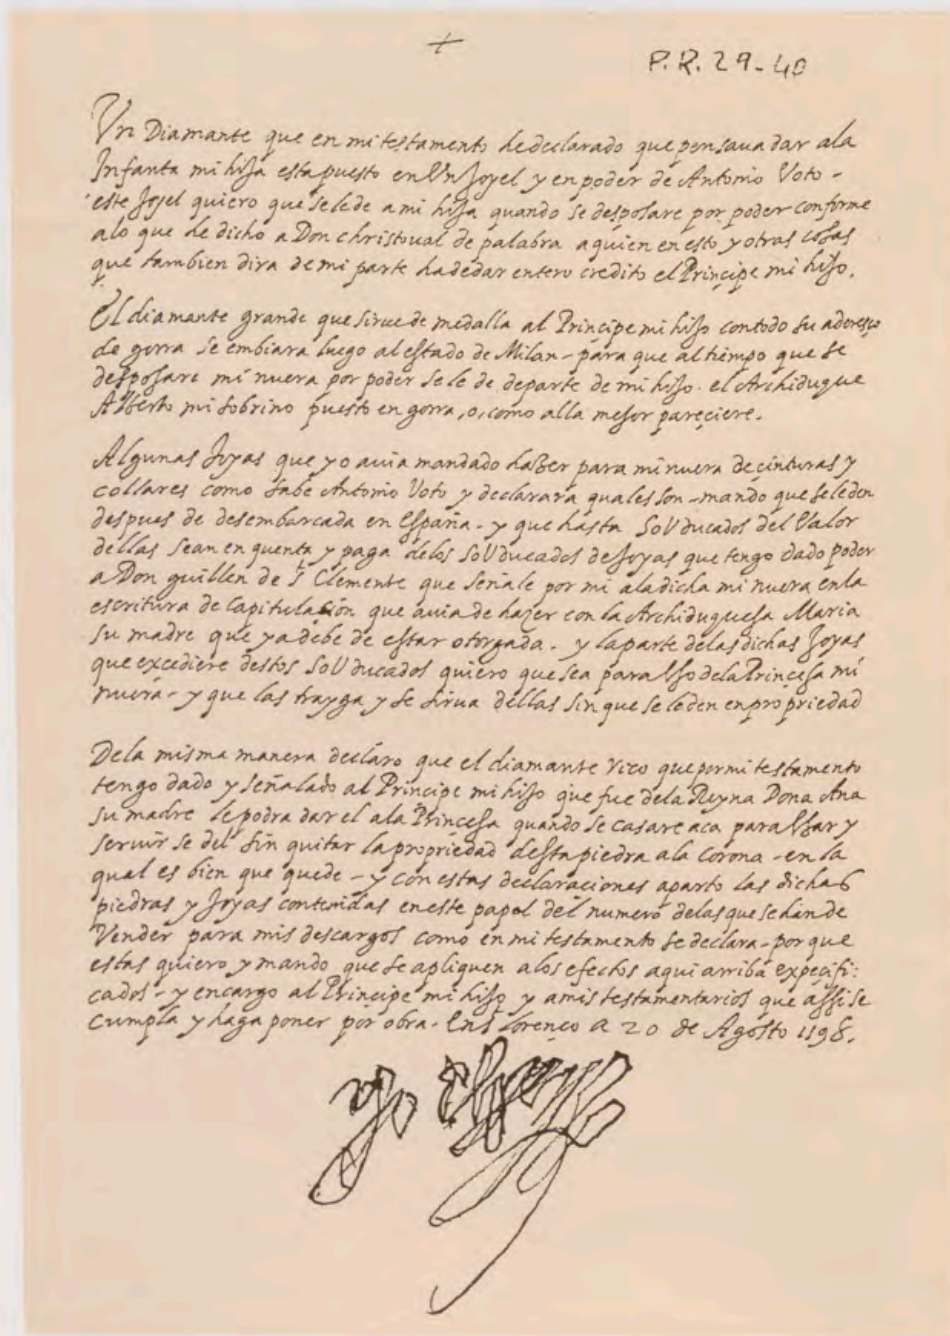 +
P.R. 29-40
Un Diamante que en mi testamento he declarado que pensaua dar ala
Infanta mi hija esta puesto en Un Joyel y en poder de Antonio Voto -
este Joyel quiero que se le de a mi hija quando se desposare por poder conforme
alo que he dicho a Don christoual de palabra a quien en esto y otras cosas
que tambien dira de mi parte ha de dar entero credito el Principe mi hijo.
El diamante grande que sirue de medalla al Principe mi hijo con todo su adereço
de gorra se embiara luego al estado de Milan - para que al tiempo que se
desposare mi nuera por poder se le de de parte de mi hijo. el Archiduque
Alberto mi sobrino puesto en gorra, o, como alla mejor pareçiere.
Algunas Joyas que yo auia mandado hazer para mi nuera de çinturas y
collares como sabe Antonio Voto y declarara quales son - mando que se le den
despues de desembarcada en España - y que hasta 50U ducados del Valor
dellas sean en quenta y paga delos 50U ducados de Joyas que tengo dado poder
a Don guillen de S. Clemente que señale por mi ala dicha mi nuera en la
escritura de Capitulaçion que auia de hazer con la Archiduquesa Maria
su madre que ya debe de estar otorgada. y la parte delas dichas Joyas
que excediere destos 50U ducados quiero que sea para Uso dela Princesa mi
nuera - y que las trayga y se sirua dellas sin que se le den en propriedad
Dela misma manera declaro que el diamante rico que por mi testamento
tengo dado y señalado al Principe mi hijo que fue dela Reyna Dona Ana
su madre le podra dar el ala Princesa quando se casare aca para Usar y
seruir se del sin quitar la propriedad desta piedra ala Corona - en la
qual es bien que quede - y con estas declaraciones aparto las dichas
piedras y Joyas contenidas en este papel del numero delas que se han de
Vender para mis descargos como en mi testamento se declara - por que
estas quiero y mando que se apliquen alos efectos aqui arriba expeçifi:
cados - y encargo al Principe mi hijo y a mis testamentarios que assi se
cumpla y haga poner por obra. En S. Lorenço a 20 de Agosto 1598.
yo el Rey